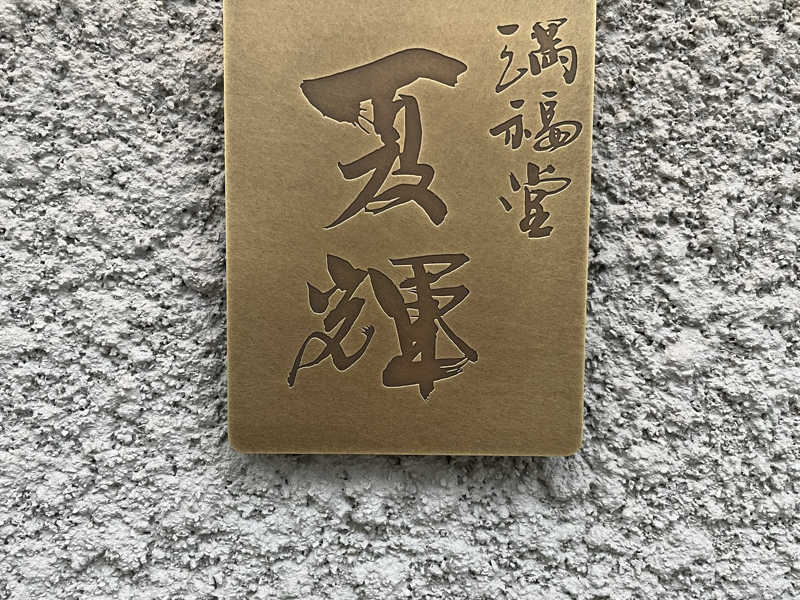 瑞福堂
夏輝